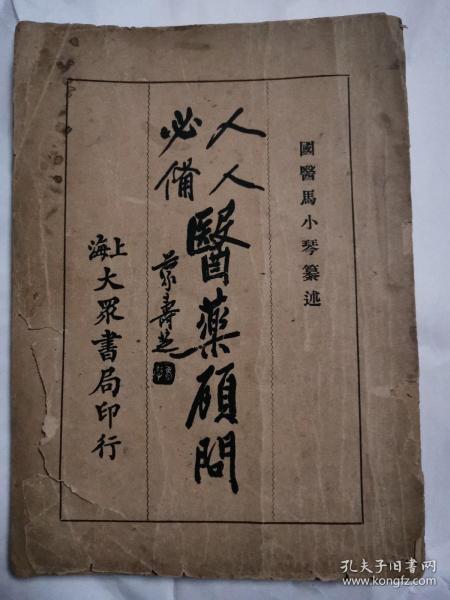 國醫馬小琴纂述
人人
必備
醫藥顧問
上海
大眾書局印行
孔夫子旧书网
www.kongfz.com